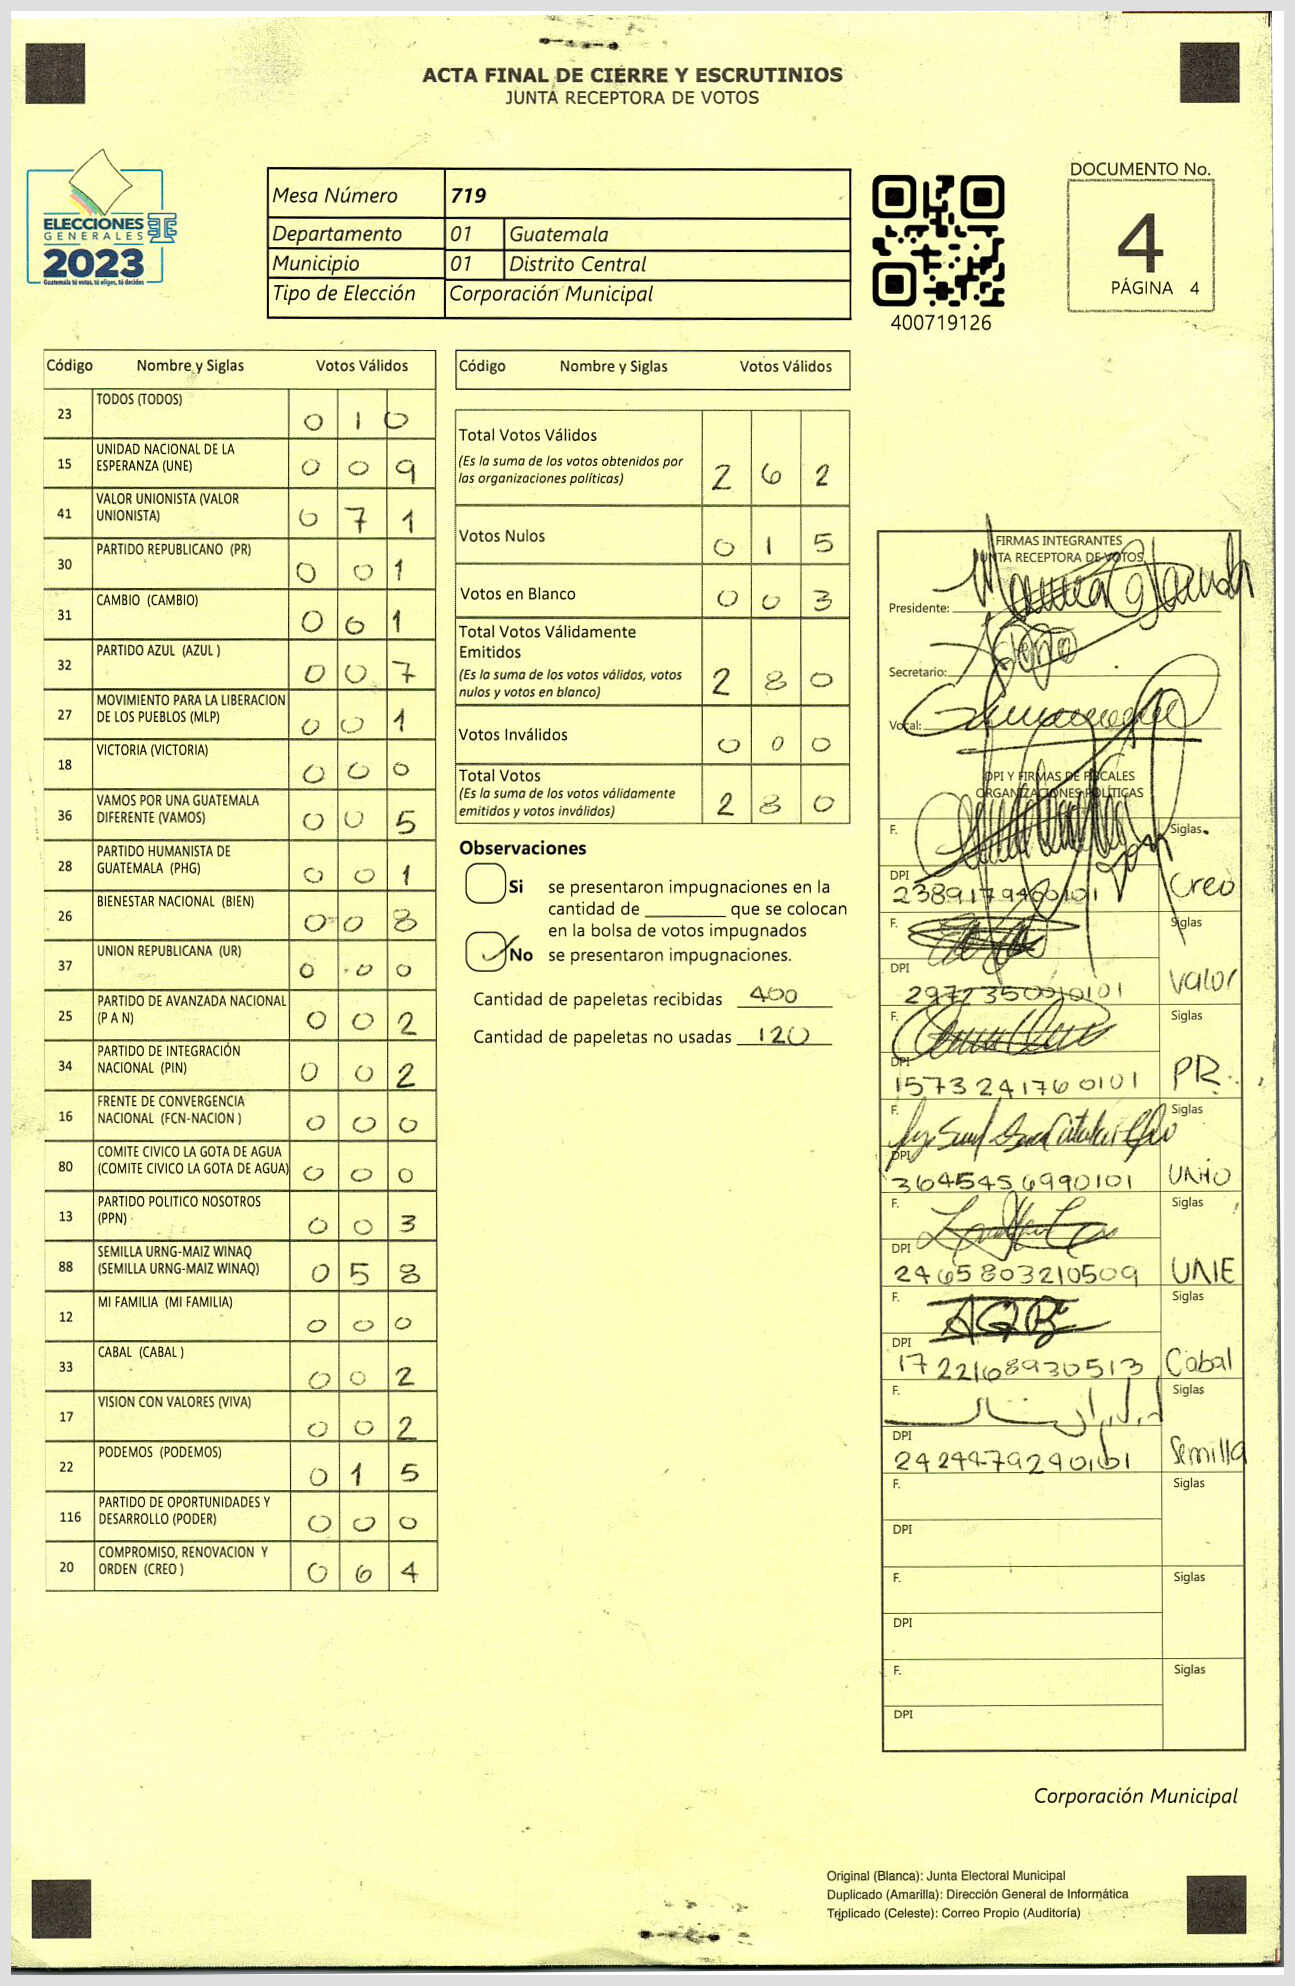 ACTA FINAL DE CIERRE Y ESCRUTINIOS
JUNTA RECEPTORA DE VOTOS
ELECCIONES
GENERALES
2023
Guatemala tú votas, tú eliges, tú decides
Mesa Número 719
Departamento 01 Guatemala
Municipio 01 Distrito Central
Tipo de Elección Corporación Municipal
400719126
DOCUMENTO No.
4
PÁGINA 4
Código Nombre y Siglas Votos Válidos
23 TODOS (TODOS) 0 1 0
15 UNIDAD NACIONAL DE LA
ESPERANZA (UNE) 0 0 9
41 VALOR UNIONISTA (VALOR
UNIONISTA) 0 7 1
30 PARTIDO REPUBLICANO (PR) 0 0 1
31 CAMBIO (CAMBIO) 0 0 1
32 PARTIDO AZUL (AZUL ) 0 0 7
27 MOVIMIENTO PARA LA LIBERACION
DE LOS PUEBLOS (MLP) 0 0 1
18 VICTORIA (VICTORIA) 0 0 0
36 VAMOS POR UNA GUATEMALA
DIFERENTE (VAMOS) 0 0 5
28 PARTIDO HUMANISTA DE
GUATEMALA (PHG) 0 0 1
26 BIENESTAR NACIONAL (BIEN) 0 0 8
37 UNION REPUBLICANA (UR) 0 0 0
25 PARTIDO DE AVANZADA NACIONAL
(P A N) 0 0 2
34 PARTIDO DE INTEGRACIÓN
NACIONAL (PIN) 0 0 2
16 FRENTE DE CONVERGENCIA
NACIONAL (FCN-NACION ) 0 0 0
80 COMITE CIVICO LA GOTA DE AGUA
(COMITE CIVICO LA GOTA DE AGUA) 0 0 0
13 PARTIDO POLITICO NOSOTROS
(PPN) 0 0 3
88 SEMILLA URNG-MAIZ WINAQ
(SEMILLA URNG-MAIZ WINAQ) 0 5 8
12 MI FAMILIA (MI FAMILIA) 0 0 0
33 CABAL (CABAL ) 0 0 2
17 VISION CON VALORES (VIVA) 0 0 2
22 PODEMOS (PODEMOS) 0 1 5
116 PARTIDO DE OPORTUNIDADES Y
DESARROLLO (PODER) 0 0 0
20 COMPROMISO, RENOVACION Y
ORDEN (CREO ) 0 6 4
Código Nombre y Siglas Votos Válidos
Total Votos Válidos
(Es la suma de los votos obtenidos por
las organizaciones políticas) 2 6 2
Votos Nulos 0 1 5
Votos en Blanco 0 0 3
Total Votos Válidamente
Emitidos
(Es la suma de los votos válidos, votos
nulos y votos en blanco) 2 8 0
Votos Inválidos 0 0 0
Total Votos
(Es la suma de los votos válidamente
emitidos y votos inválidos) 2 8 0
Observaciones
Si se presentaron impugnaciones en la
cantidad de que se colocan
en la bolsa de votos impugnados
No se presentaron impugnaciones.
Cantidad de papeletas recibidas 400
Cantidad de papeletas no usadas 120
FIRMAS INTEGRANTES
JUNTA RECEPTORA DE VOTOS
Presidente:
Secretario:
Vocal:
DPI Y FIRMAS DE FISCALES
ORGANIZACIONES POLÍTICAS
F. Siglas
DPI Creo
2389179460101
F. Siglas
DPI Valor
F. Siglas
DPI PR
1573241760101
F. Siglas
DPI
3645456990101
F. Siglas
DPI
2465803210509 UNE
F. Siglas
DPI
1722168930513 Cabal
F. Siglas
DPI Semilla
F. Siglas
DPI
F. Siglas
DPI
F. Siglas
DPI
Corporación Municipal
Original (Blanca): Junta Electoral Municipal
Duplicado (Amarilla): Dirección General de Informática
Triplicado (Celeste): Correo Propio (Auditoría)